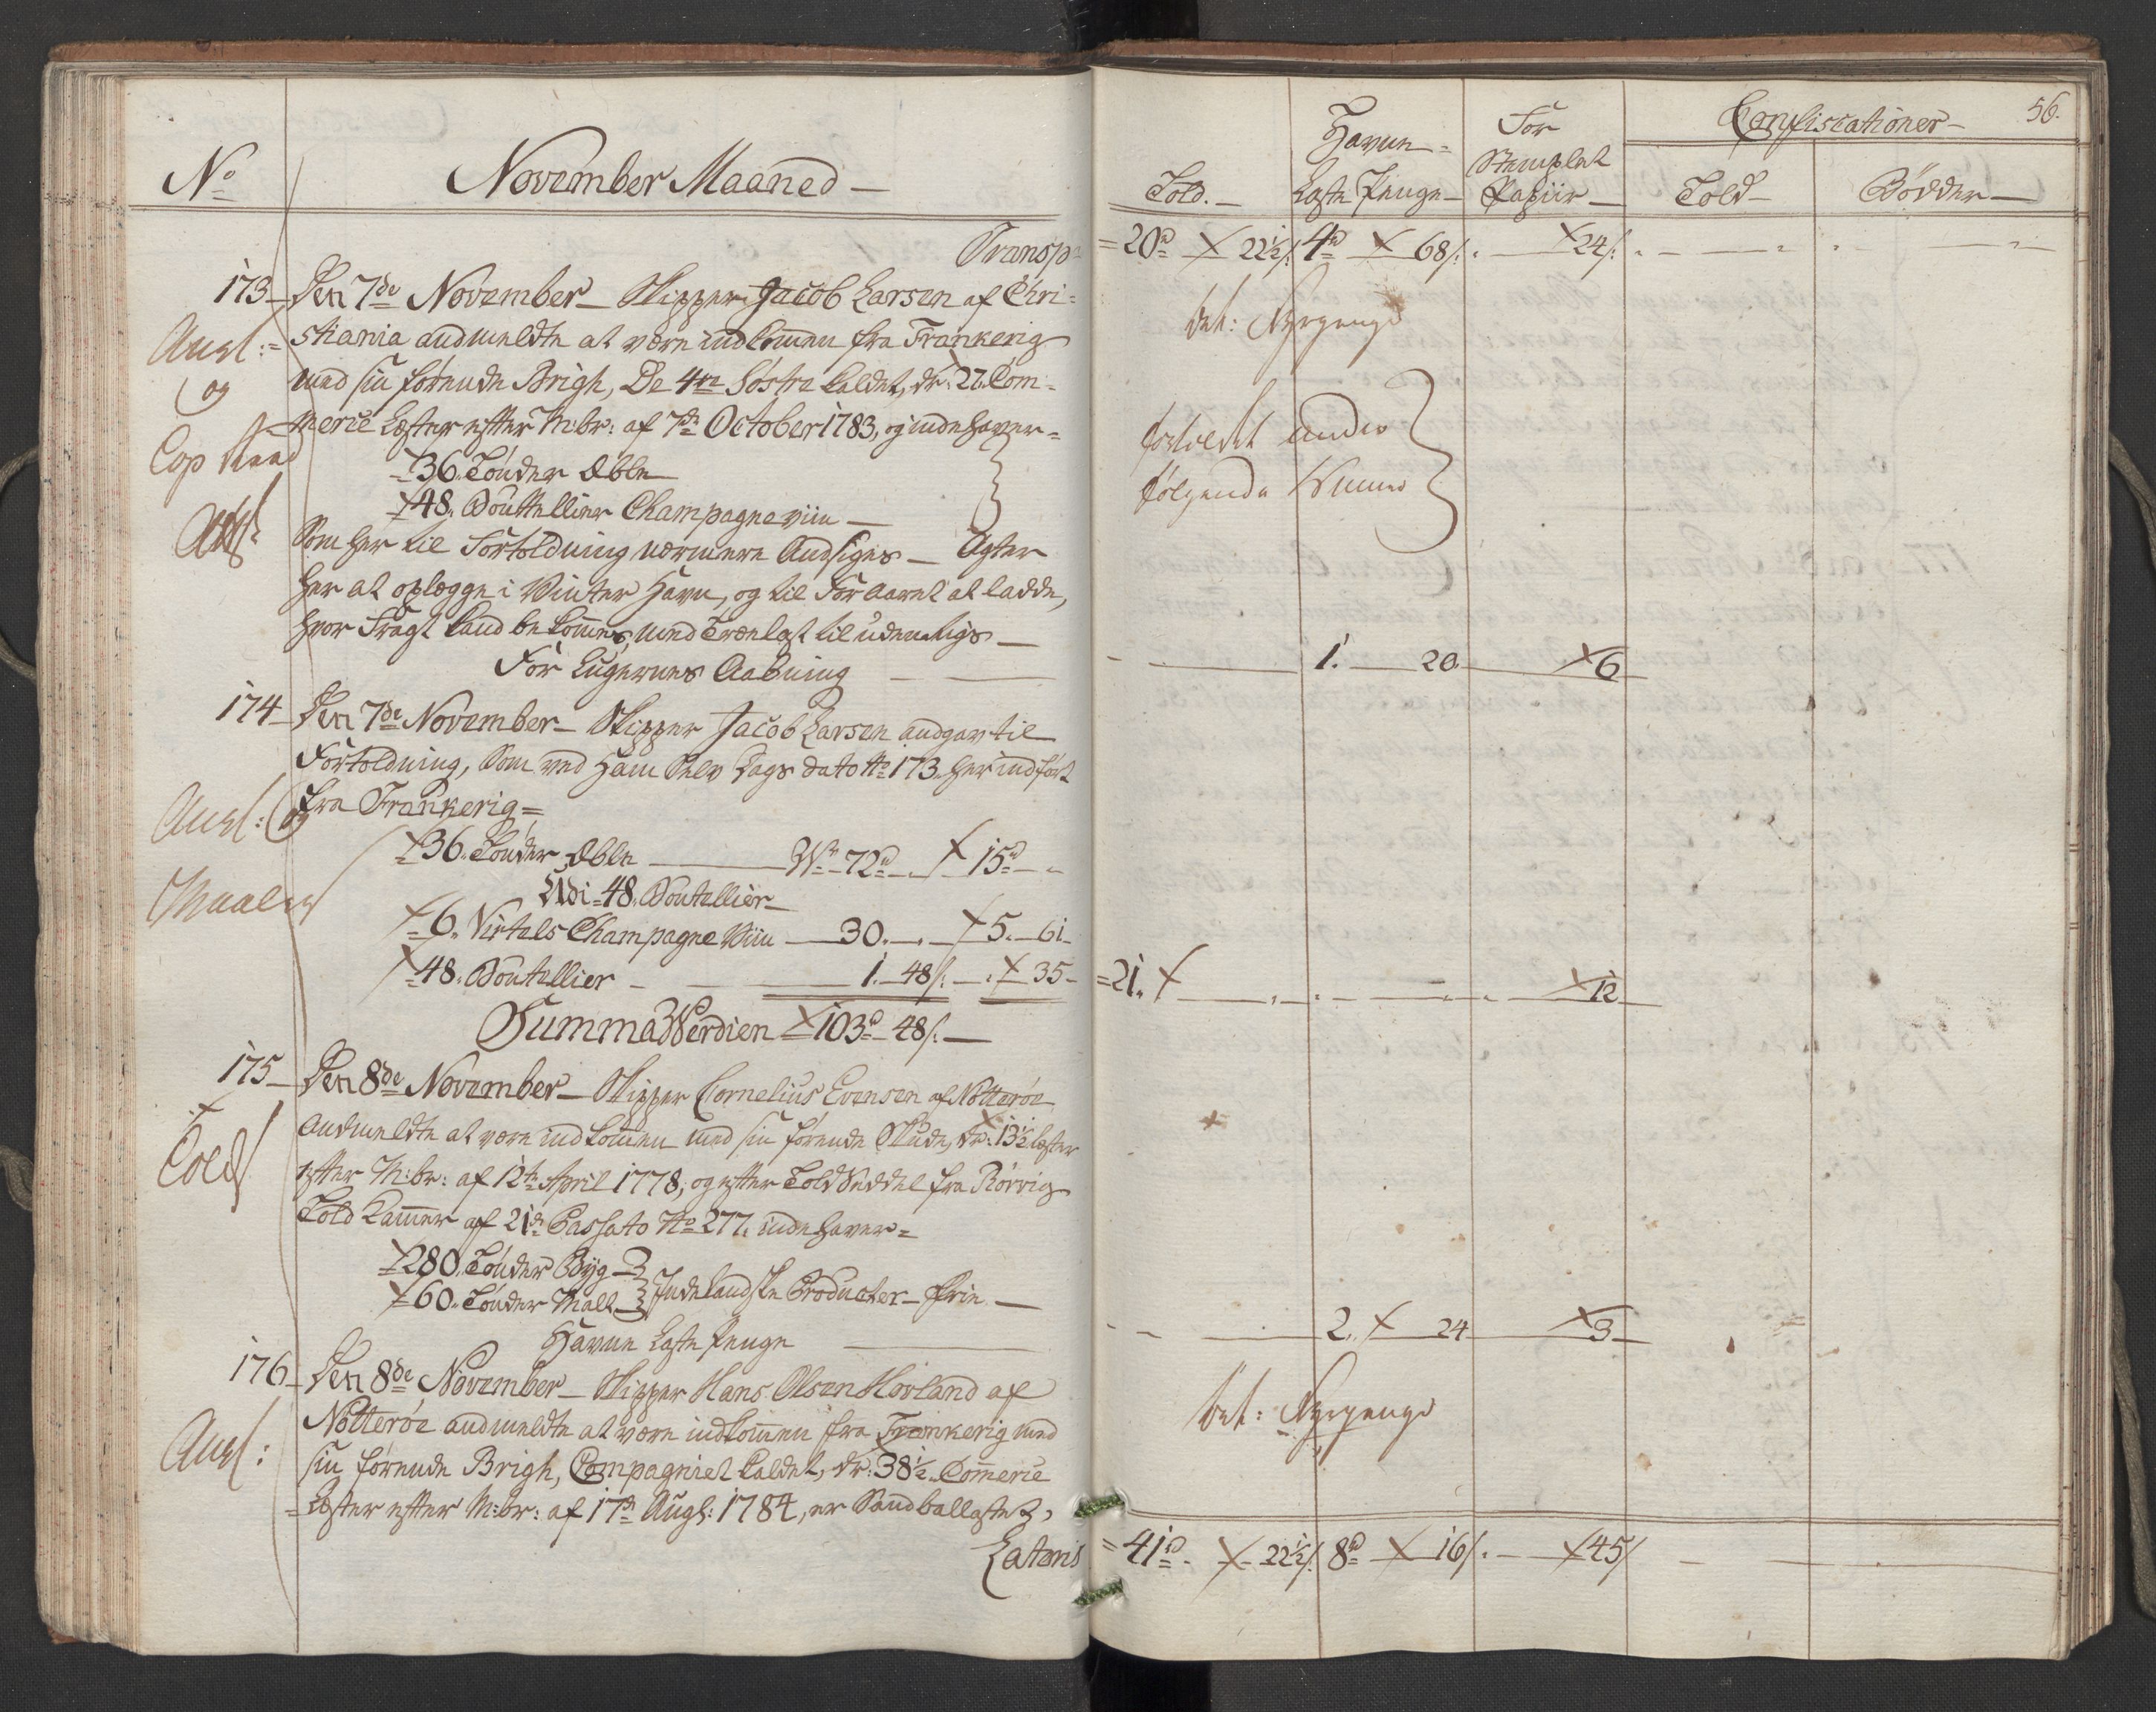 No
November Maaned
Transp
173 Den 7de November Skipper Jacob Larsen af Chri=
stiania andmeldte at være indkommen fra Frankerig
med sin førende Brigh, De 4re Söstre kaldet, dr: 27 Com=
merce Læster efter M:br: af 7de October 1783, og indehaver=
36. Tönder Æble
48. Bouttellier Champagne viin
Som her til Fortoldning nærmere Andsiges Agter
her at oplægge i Winter Havn, og til Foraaret at ladde,
hvor Fragt kand bekommes, med Trælast til udenrigs
For Lugernes Aabning
174 Den 7de November Skipper Jacob Larsen andgav til
Fortoldning, Som ved ham Selv Dags dato No 173. her indført
fra Frankerig=
36. Tönder Æble W 72 15
Udi 48. Boutellier
6. Virtels Champagne Viin 30. 5. 61
48. Boutellier 1. 48/: 35
Summa Werdien 103 48/:
175 Den 8de November Skipper Cornelius Evensen af Nötteröe
andmeldte at være indkommen med sin førende Skude, dr: 13½ læster
efter M:br: af 12te April 1778, og efter Told Seddel fra Rörvig
Told Kammer af 21de Passato No 277. indehaver=
280. Tönder Byg
60. Tönder Malt Indelandske Producter frie
Havne Laste Penge
176 Den 8de November Skipper Hans Olsen Hovland af
Nötteröe andmeldte at være indkommen fra Frankerig med
sin førende Brigh, Compagniet kaldet, dr: 38½ Commerce
Læster efter M:br: af 17de Augs: 1784, er Sandballastet,
Lateris
Angl:
og
Cop
Att
Angl: og
Maaler
Told
Angl:
56.
Told. Havne= Laste Penge For Stemplet Papiir Confiscationer
Told Bödder
20 22½/: 4 68/: 24/:
bet:
fortoldet under
følgende Numer
1. 20. 6
21. 12
2. 24 3
bet:
41 22½/: 8 16/: 45/